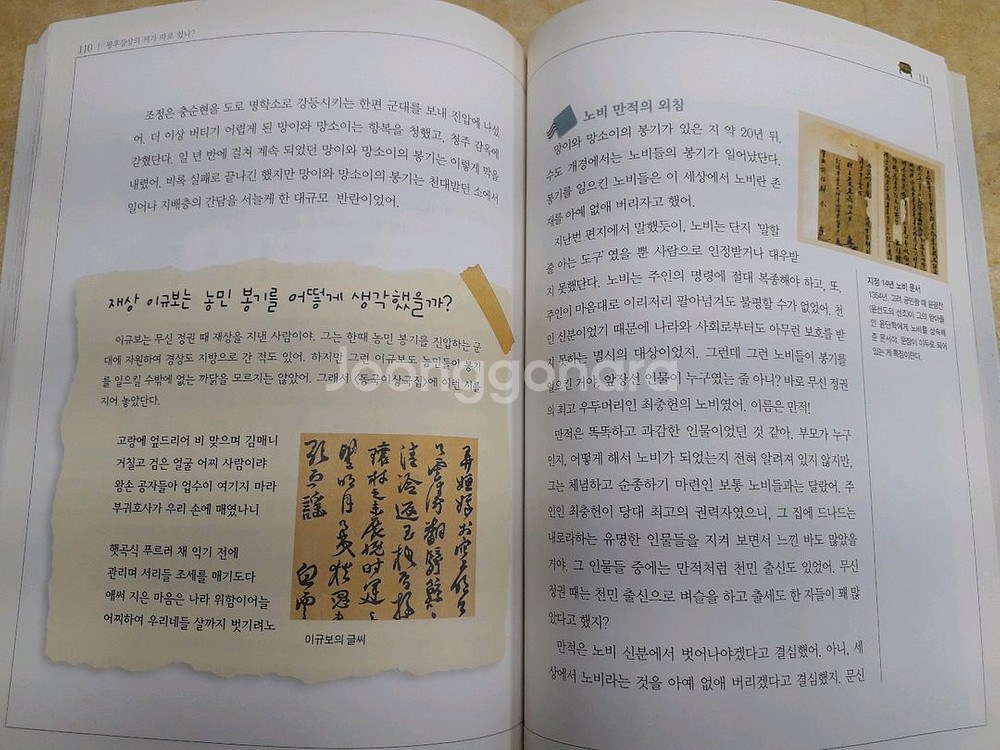 110 | 왕후장상의 씨가 따로 있나?
조정은 충순현을 도로 명학소로 강등시키는 한편 군대를 보내 진압에 나섰
어. 더 이상 버티기 어렵게 된 망이와 망소이는 항복을 청했고, 청주 감옥에
갇혔단다. 일 년 반에 걸쳐 계속 되었던 망이와 망소이의 봉기는 이렇게 막을
내렸어. 비록 실패로 끝나긴 했지만 망이와 망소이의 봉기는 천대받던 소에서
일어나 지배층의 간담을 서늘케 한 대규모 반란이었어.
재상 이규보는 농민 봉기를 어떻게 생각했을까?
이규보는 무신 정권 때 재상을 지낸 사람이야. 그는 한때 농민 봉기를 진압하는 군
대에 자원하여 경상도 지방으로 간 적도 있어. 하지만 그런 이규보도 농민들이 봉기
를 일으킬 수밖에 없는 까닭을 모르지는 않았어. 그래서 〈동국이상국집〉에 이런 시를
지어 놓았단다.
고랑에 엎드리어 비 맞으며 김매니
거칠고 검은 얼굴 어찌 사람이랴
왕손 공자들아 업수이 여기지 마라
부귀호사가 우리 손에 매였나니
햇곡식 푸르러 채 익기 전에
관리며 서리들 조세를 매기도다
애써 지은 마음은 나라 위함이어늘
어찌하여 우리네들 살까지 벗기려노
이규보의 글씨
111
노비 만적의 외침
망이와 망소이의 봉기가 있은 지 약 20년 뒤,
수도 개경에서는 노비들의 봉기가 일어났단다.
봉기를 일으킨 노비들은 이 세상에서 노비란 존
재를 아예 없애 버리자고 했어.
지난번 편지에서 말했듯이, 노비는 단지 '말할
줄 아는 도구'였을 뿐 사람으로 인정받거나 대우받
지 못했단다. 노비는 주인의 명령에 절대 복종해야 하고, 또,
주인이 마음대로 이리저리 팔아넘겨도 불평할 수가 없었어. 천
한 신분이었기 때문에 나라와 사회로부터도 아무런 보호를 받
지 못하는 멸시의 대상이었지. 그런데 그런 노비들이 봉기를
일으킨 거야. 앞장선 인물이 누구였는 줄 아니? 바로 무신 정권
의 최고 우두머리인 최충헌의 노비였어. 이름은 만적!
만적은 똑똑하고 과감한 인물이었던 것 같아. 부모가 누구
인지, 어떻게 해서 노비가 되었는지 전혀 알려져 있지 않지만,
그는 체념하고 순종하기 마련인 보통 노비들과는 달랐어. 주
인인 최충헌이 당대 최고의 권력자였으니, 그 집에 드나드는
내로라하는 유명한 인물들을 지켜 보면서 느낀 바도 많았을
거야. 그 인물들 중에는 만적처럼 천민 출신도 있었어. 무신
정권 때는 천민 출신으로 벼슬을 하고 출세도 한 자들이 꽤 많
았다고 했지?
만적은 노비 신분에서 벗어나야겠다고 결심했어. 아니, 세
상에서 노비라는 것을 아예 없애 버리겠다고 결심했지. 문신
지정 14년 노비 문서
1354년, 고려 공민왕 때 윤광전
(윤선도의 선조)이 그의 맏아들
인 윤단학에게 노비를 상속해
준 문서야. 문장이 이두로 되어
있는 게 특징이란다.
Joonggonara